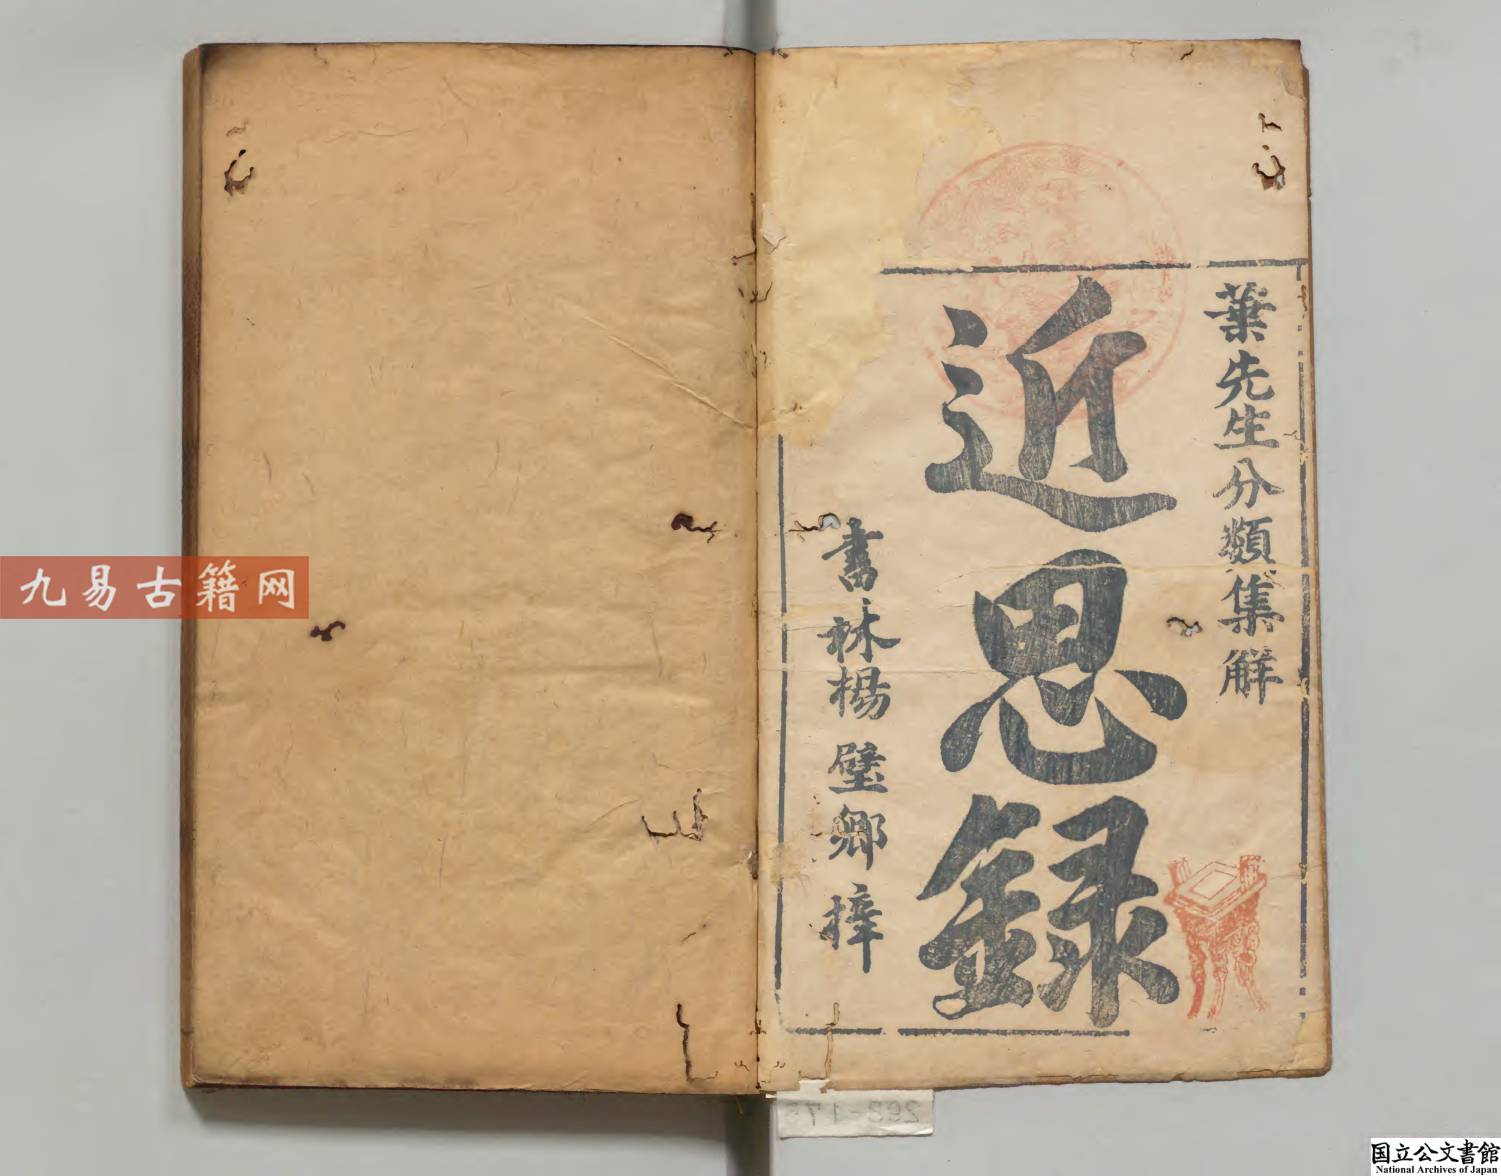 葉先生分類集解
近思録
書林楊璧卿梓
九易古籍网
国立公文書館
National Archives of Japan